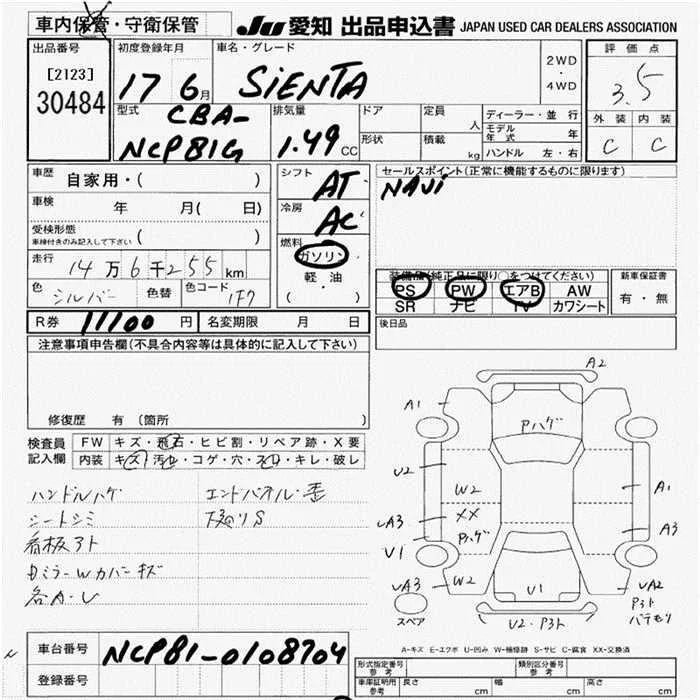 車内保管・守衛保管
JU 愛知 出品申込書 JAPAN USED CAR DEALERS ASSOCIATION
出品番号
[2123]
30484
初度登録年月
17 6月
車名・グレード
SiENTA
2WD
・
4WD
評価点
3.5
外装 内装
C C
型式
CBA-
NCP81G
排気量
1.49 CC
ドア
形状
定員
人
積載
kg
ディーラー・並行
モデル年式 年
ハンドル 左・右
車歴
自家用・( )
車検
年 月( 日)
受検形態
車検付きのみ記入して下さい ( )
走行
14万6千255km
色
シルバー
色替
色コード
1F7
シフト
AT
冷房
AC
燃料
ガソリン
軽・油
( ・ )
セールスポイント(正常に機能するものに限ります)
NAVi
装備品(純正品に限り○をつけてください)
PS PW エアB AW
SR ナビ TV カワシート
新車保証書
有・無
R券 11100 円
名変期限 月 日
後日品
注意事項申告欄(不具合内容等は具体的に記入して下さい)
修復歴 有(箇所 )
検査員
記入欄
FW キズ・飛石・ヒビ割・リペア跡・X要
内装 キズ・汚れ・コゲ・穴・スレ・キレ・破レ
ハンドルハゲ
シートシミ
看板アト
各A・U
A2
A1
Pハゲ
U2
W2
A1
XX
UA3
Pハゲ
A3
U1
UA3
W2
U1
UA2
スペア
U2・P3ト
P3ト
A-キズ E-エクボ U-凹み W-補修跡 S-サビ C-腐食 XX-交換済
車台番号
NCP81-0108704
登録番号
形式指定番号
参考
類別区分番号
参考
車庫証明用
参考
長さ cm
幅 cm
高さ cm